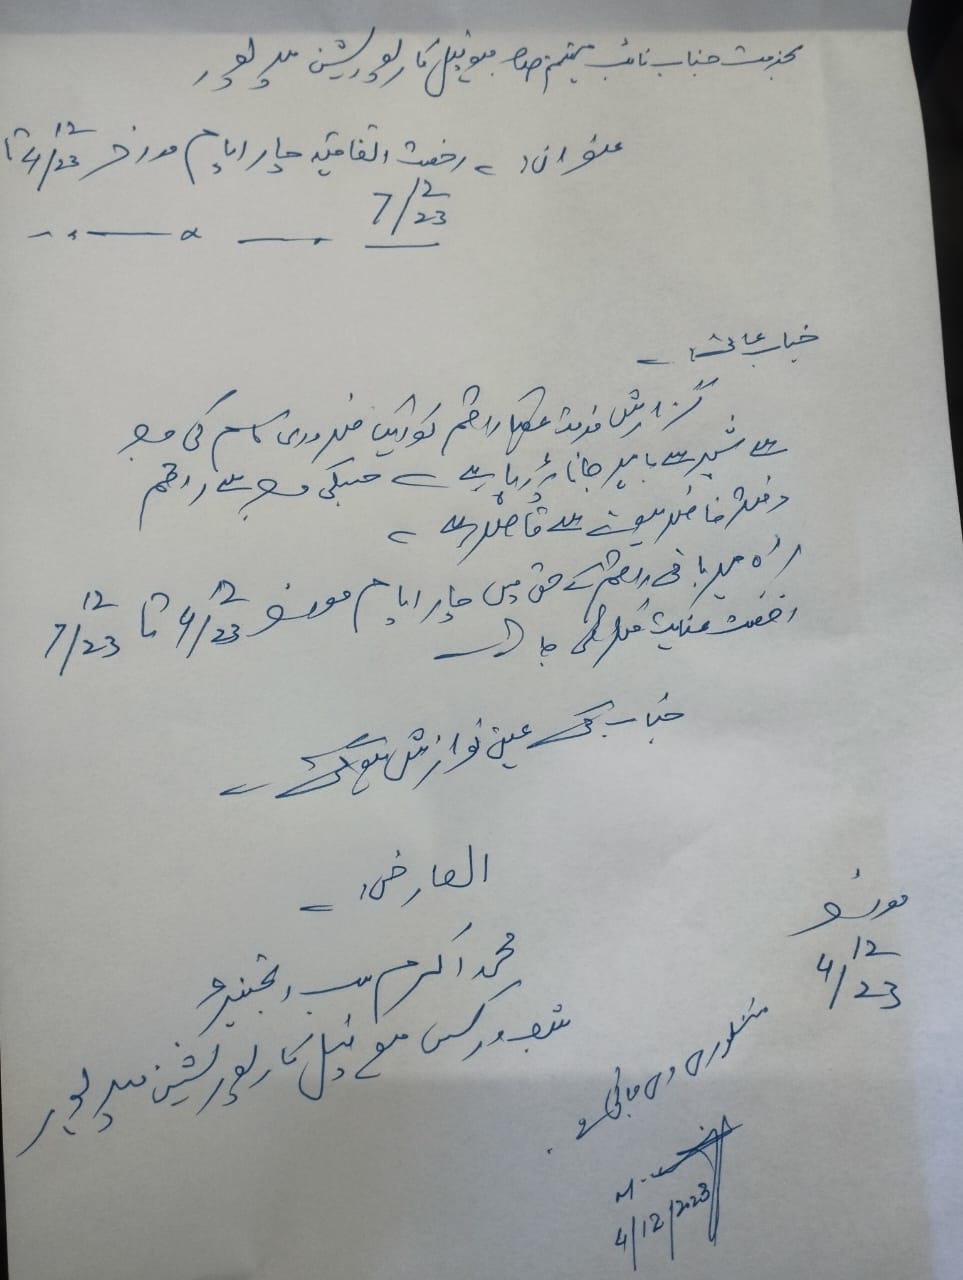 بخدمت جناب نائب مہتمم صاحب میونسپل کارپوریشن میرپور
عنوان:۔ رخصت اتفاقیہ چار ایام مورخہ 4/12/23 تا
7/12/23
جناب عالی!۔
گزارش خدمت ہیکہ راقم کو ایک ضروری کام کی وجہ
سے شہر سے باہر جانا پڑ رہا ہے۔ جسکی وجہ سے راقم
دفتر حاضر ہونے سے قاصر ہے۔
براہ مہربانی راقم کے حق میں چار ایام مورخہ 4/12/23 تا 7/12/23
رخصت عنایت فرمائی جائے
جناب کی عین نوازش ہوگی۔
العارض:۔
محمد اکرم سب انجینئر
شعبہ ورکس میونسپل کارپوریشن میرپور
مورخہ
4/12/23
منظوری دی جاتی ہے۔
4/12/2023